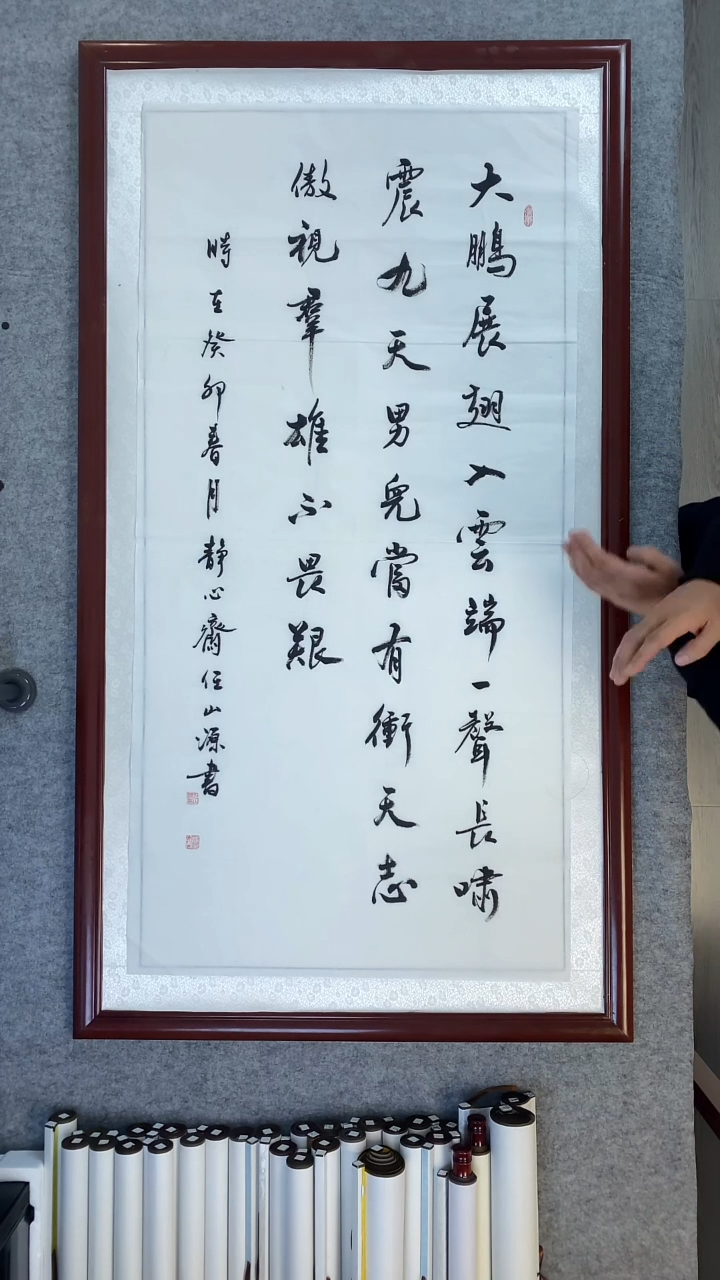 大鵬展翅入雲端一聲長嘯
震九天男兒當有衝天志
傲視羣雄不畏艱
時在癸卯春月靜心齋任山源書